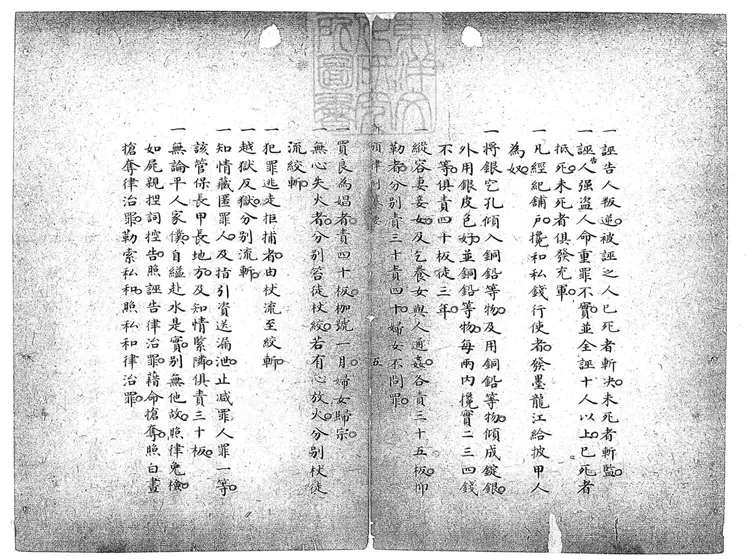 一誣告人叛逆被誣之人已死者斬決未死者斬監
一誣告人强盗人命重罪不實並全誣十人以上已死者
抵死未死者俱發充軍
一凡經紀鋪戶攙和私錢行使者發黑龍江給披甲人
為奴
一將銀空孔傾入銅鉛等物及用銅鉛等物傾成錠銀
外用銀皮色好並銅鉛等物每兩内攙實二三四錢
不等俱責四十板徒三年
一縱容妻妾女及乞養女與人通姦各責三十五板抑
勒者分別責三十責四十婦女不問罪
律例
五
一買良為娼者責四十板枷號一月婦女歸宗
一無心失火者分別笞徒杖絞若有心放火分別杖徒
流絞斬
一犯罪逃走拒捕者由杖流至絞斬
一越獄反獄分別流斬
一知情藏匿罪人及指引資送漏泄止减罪人罪一等
該管保長甲長地方及知情緊隣俱責三十板
一無論平人家僕自縊赴水是實別無他故照律免檢
如屍親捏詞控告照誣告律治罪藉命搶奪照白晝
搶奪律治罪勒索私和照私和律治罪